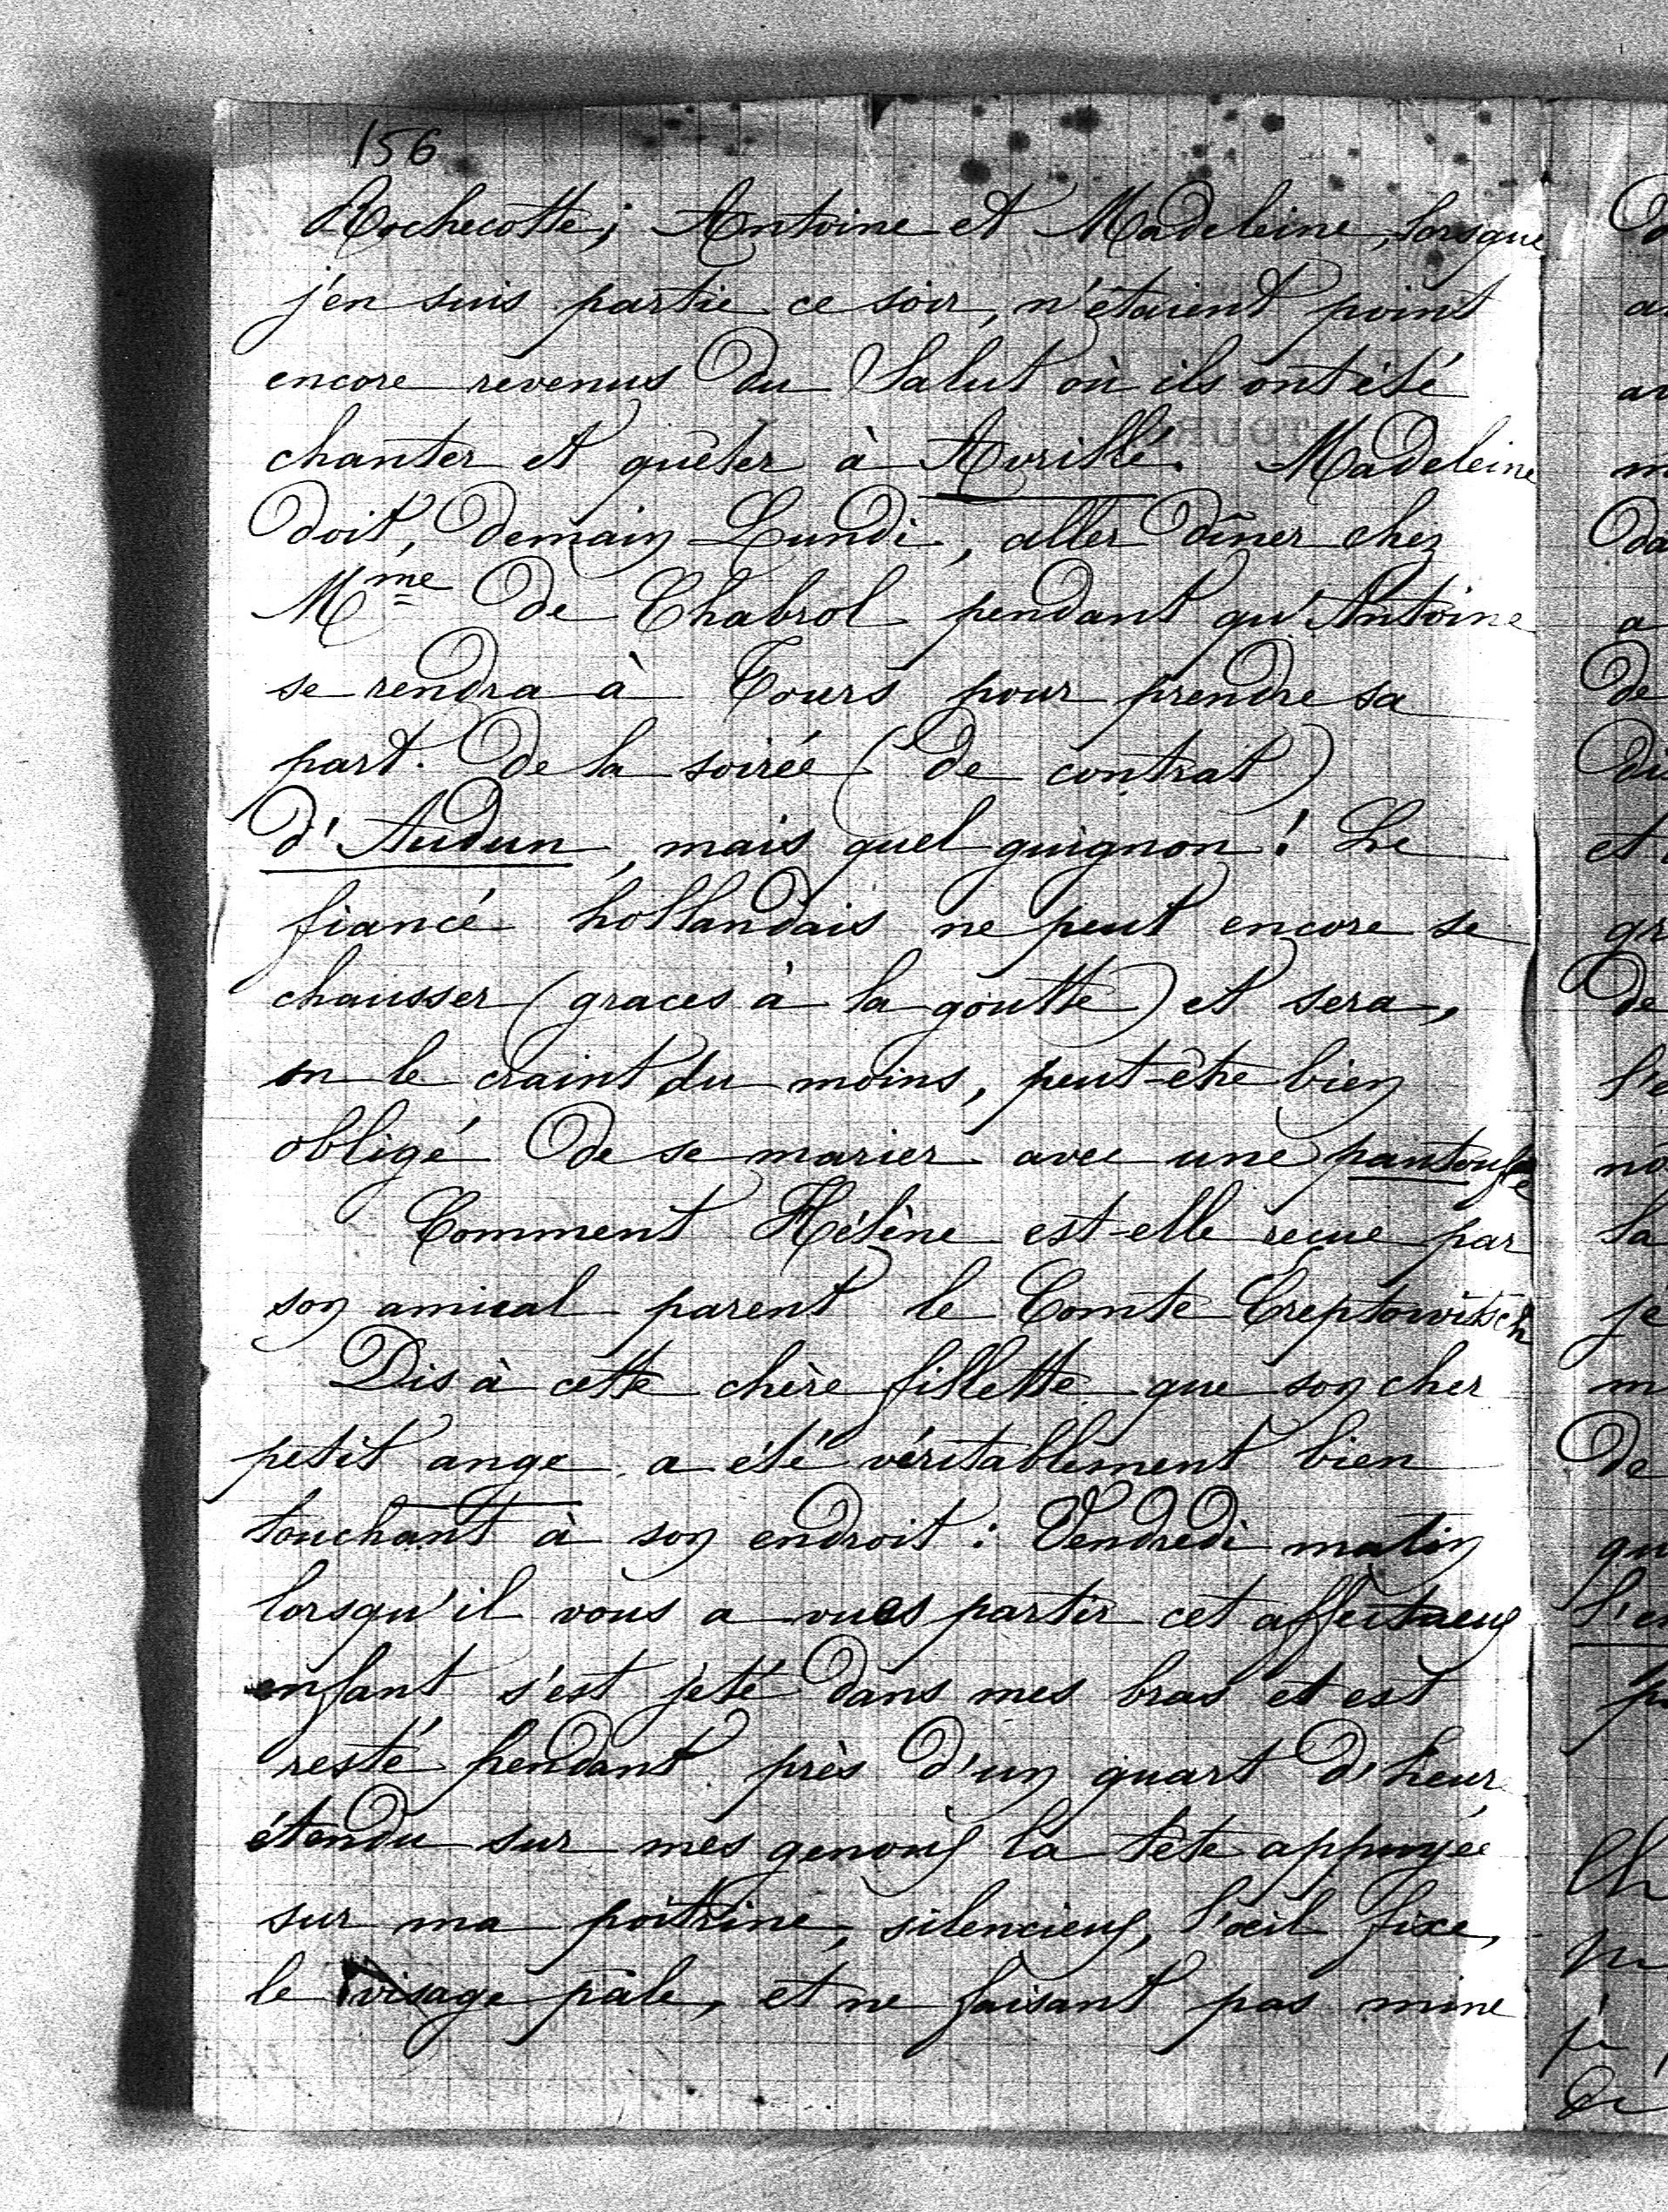 156
Rochecotte ; Antoine et Madeleine, lorsque
j'en suis partie ce soir, n'étaient point
encore revenus du Salut où ils ont été
chanter et quêter à Avrillé. Madeleine
doit, demain Lundi, aller dîner chez
Mme de Chabrol pendant qu'Antoine
se rendra à Tours pour prendre sa
part. de la soirée (de contrat)
d'Audun, mais quel guignon ! Le
fiancé hollandais ne peut encore se
chausser (graces à la goutte) et sera,
on le craint du moins, peut-être bien
obligé de se marier avec une pantoufle
Comment Hélène est-elle reçue par
son amical parent le Comte Creptowitsch
Dis à cette chère fillette que son cher
petit ange a été véritablement bien
touchant à son endroit : Vendredi matin
lorsqu'il vous a vues partir cet affectueux
enfant s'est jeté dans mes bras et est
resté pendant près d'un quart d'heur
étendu sur mes genoux la tête appuyée
sur ma poitrine, silencieux, l'œil fixe,
le visage pâle, et ne faisant pas mine